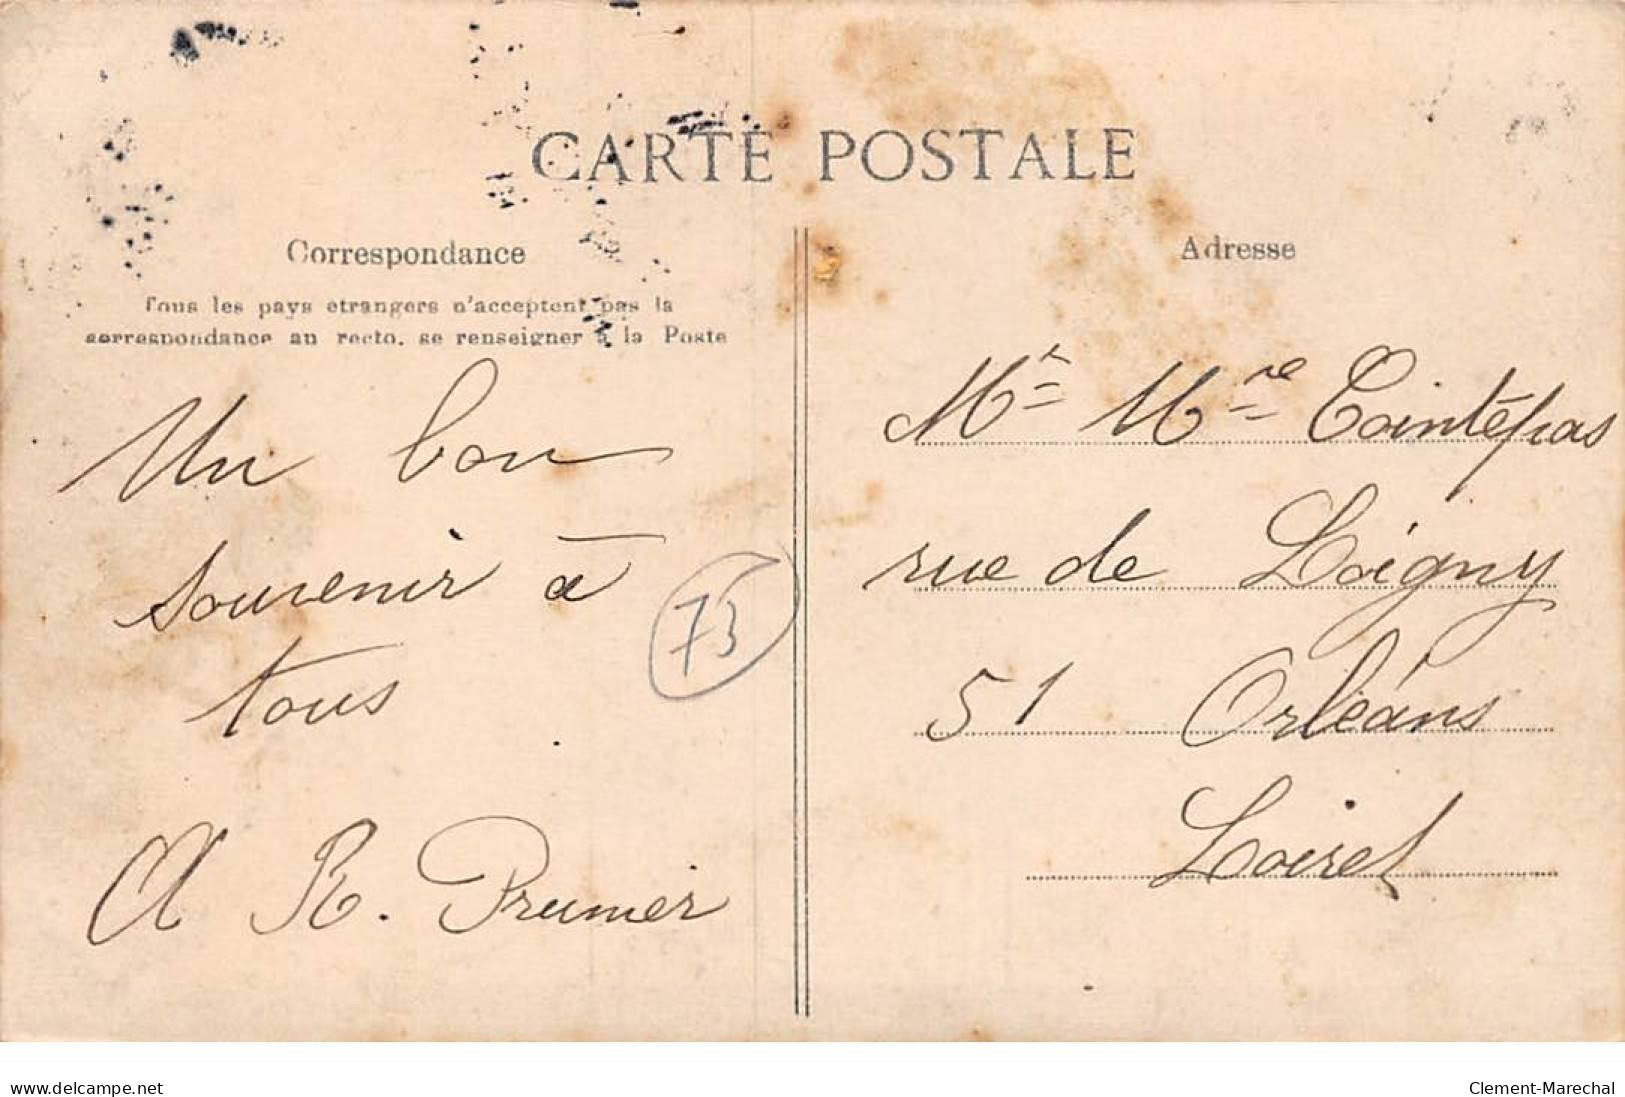 CARTE POSTALE
Correspondance
Tous les pays etrangers n'acceptent pas la
correspondance au recto, se renseigner à la Poste
Un bon
souvenir à
tous
A R. Prumier
73
Adresse
Mr Mme Cointépas
rue de Loigny
51 Orléans
Loiret
www.delcampe.net
Clement-Marechal